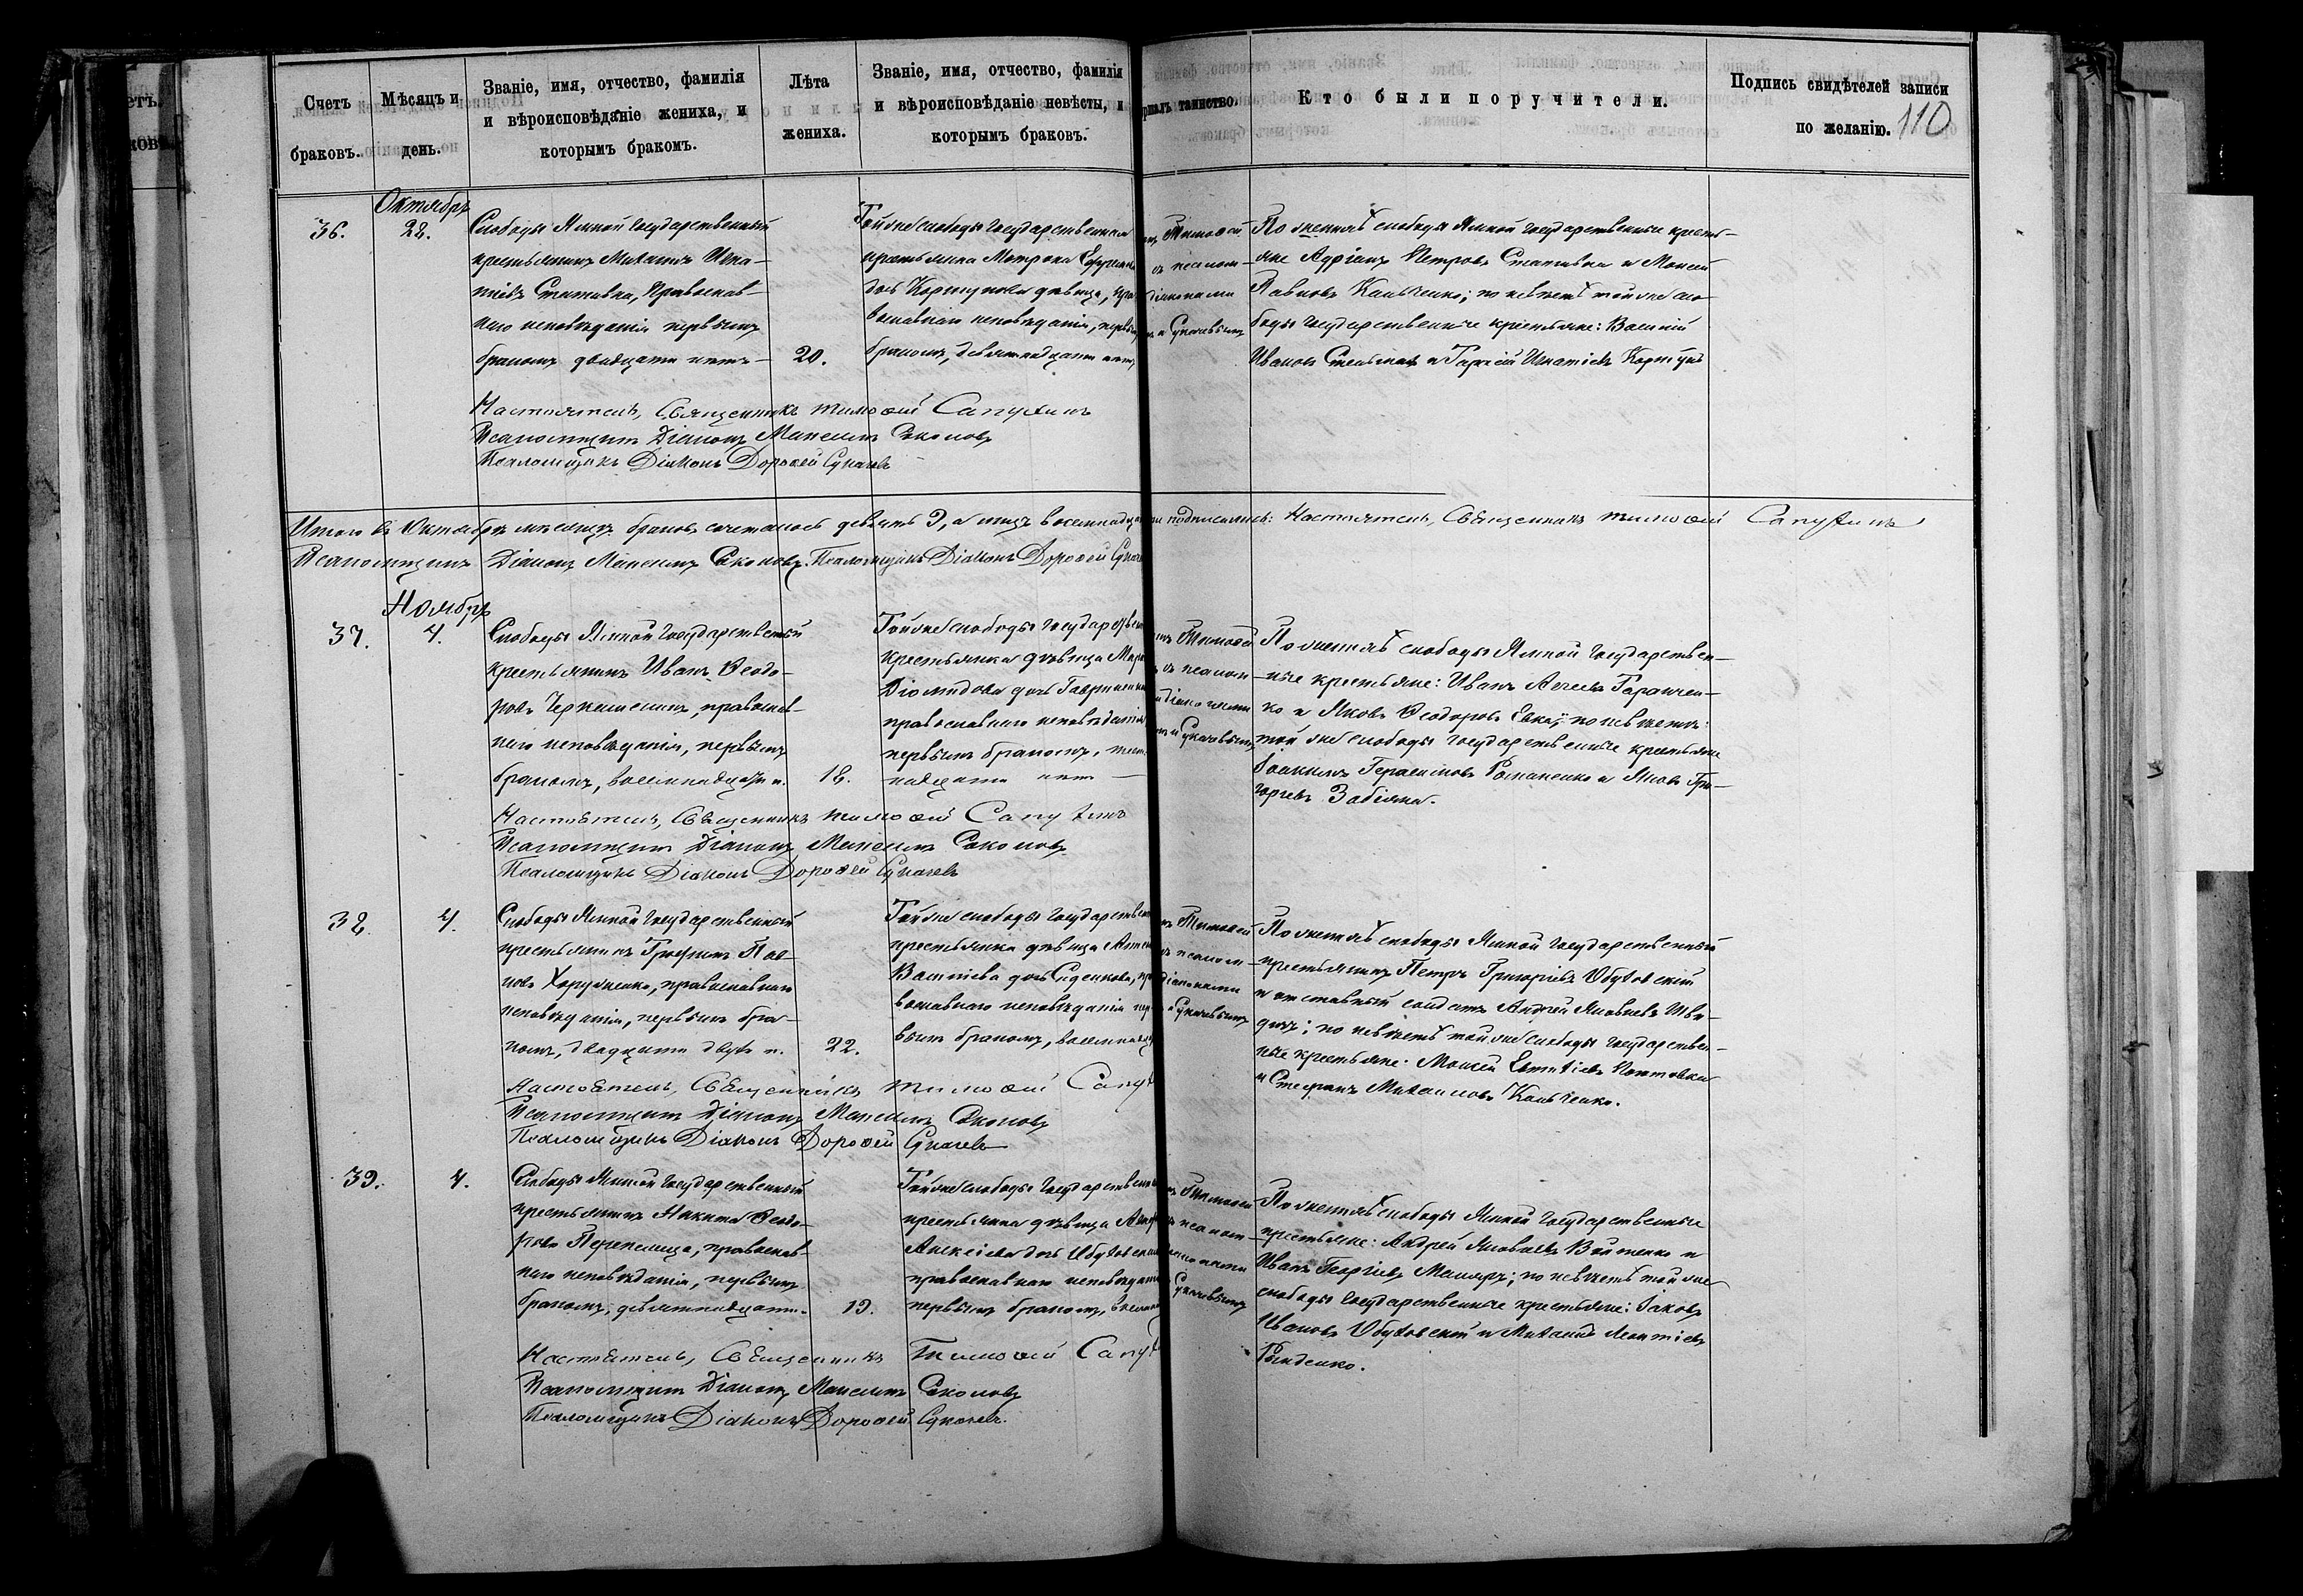 Счетъ
браковъ.
Мѣсяцъ и
день.
Званіе, имя, отчество, фамилія
и вѣроисповѣданіе жениха, и
которымъ бракомъ.
Лѣта
жениха.
Званіе, имя, отчество, фамилія
и вѣроисповѣданіе невѣсты, и
которымъ бракомъ.
таинство.
Кто были поручители.
Подпись свидѣтелей записи
по желанію.
110
36.
Октябрь
22.
Слободы Ямной государственный
крестьянинъ Михаилъ Игна-
тіевъ, Православ-
наго исповѣданія первымъ
бракомъ двадцати лѣтъ
20.
Той же слободы государственная
крестьянка Матрона
дочь Коршунова дѣвица, пра
вославнаго исповѣданія, первы
бракомъ, девятнадцати лѣтъ
Тимоѳей
псалом-
діаконами
и Сукачевымъ
По женихѣ слободы Ямной государственные кресть-
яне Адріанъ Петровъ и Моисей
Павловъ Кальченко; по невѣстѣ той же сло
боды государственные крестьяне: Василій
Ивановъ и Игнатіевъ Коршунъ
Настоятель, Священникъ Тимоѳей Сапухинъ
Псаломщикъ Діаконъ Максимъ Соколовъ
Псаломщикъ Діаконъ Дороѳей Сукачевъ
Итого въ Октябрѣ мѣсяцѣ браковъ сочеталось девять 9, а лицъ восемнадца подписались: Настоятель, Священникъ Тимоѳей Сапухинъ
Псаломщикъ Діаконъ Максимъ Соколовъ. Псаломщикъ Діаконъ Дороѳей Сукач
37.
Ноябрь
4.
Слободы Ямной государственный
крестьянинъ Иванъ Ѳеодо-
ровъ, православ-
наго исповѣданія, первымъ
бракомъ, восемнадцати л.
18.
Той же слободы государствен
крестьянка дѣвица
Діомидова дочь Гавриленкова
православнаго исповѣданія
первымъ бракомъ,
надцати лѣтъ
Тимоѳей
псалом
діаконами
и Сукачевымъ
По женихѣ слободы Ямной государствен-
ные крестьяне: Иванъ
ко и Яковъ Ѳеодоровъ; по невѣстѣ:
той же слободы государственные крестьяне
Іоакимъ Герасимовъ Романенко и Яковъ Гри-
горьевъ Забіяка.
Настоятель, Священникъ Тимоѳей Сапухинъ
Псаломщикъ Діаконъ Максимъ Соколовъ
Псаломщикъ Діаконъ Дороѳей Сукачевъ
38.
4.
Слободы Ямной государственный
крестьянинъ Трофимъ Пав-
ловъ Харченко, православнаго
исповѣданія, первымъ бра-
комъ, двадцати двухъ л.
22.
Той же слободы государствен
крестьянка дѣвица
Василіева дочь Сиденкова, пра
вославнаго исповѣданія пер
вымъ бракомъ, восемнадц
Тимоѳей
псалом-
діаконами
и Сукачевымъ
По женихѣ слободы Ямной государственный
крестьянинъ Петръ Григорьевъ Обуховскій
и отставный солдатъ Андрей Яковлевъ Шве-
децъ; по невѣстѣ той же слободы государствен-
ные крестьяне: Моисей
и Стефанъ Михаиловъ Кальченко.
Настоятель, Священникъ Тимоѳей Сапух
Псаломщикъ Діаконъ Максимъ Соколовъ
Псаломщикъ Діаконъ Дороѳей Сукачевъ
39.
4.
Слободы Ямной государственный
крестьянинъ Никита Ѳеодо-
ровъ Перепелица, православ-
наго исповѣданія, первымъ
бракомъ, девятнадцати.
19.
Той же слободы государствен
крестьянка дѣвица
Алексіева дочь Обуховская
православнаго исповѣданія
первымъ бракомъ, восемна
Тимоѳей
псалом-
Сукачевымъ
По женихѣ слободы Ямной государственные
крестьяне: Андрей Яковлевъ Войтенко и
Иванъ Георгіевъ Маляръ; по невѣстѣ той же
слободы государственные крестьяне: Іаковъ
Ивановъ Обуховскій и Михаилъ Леонтіевъ
Руденко.
Настоятель, Священникъ Тимоѳей Сапух
Псаломщикъ Діаконъ Максимъ Соколовъ
Псаломщикъ Діаконъ Дороѳей Сукачевъ.